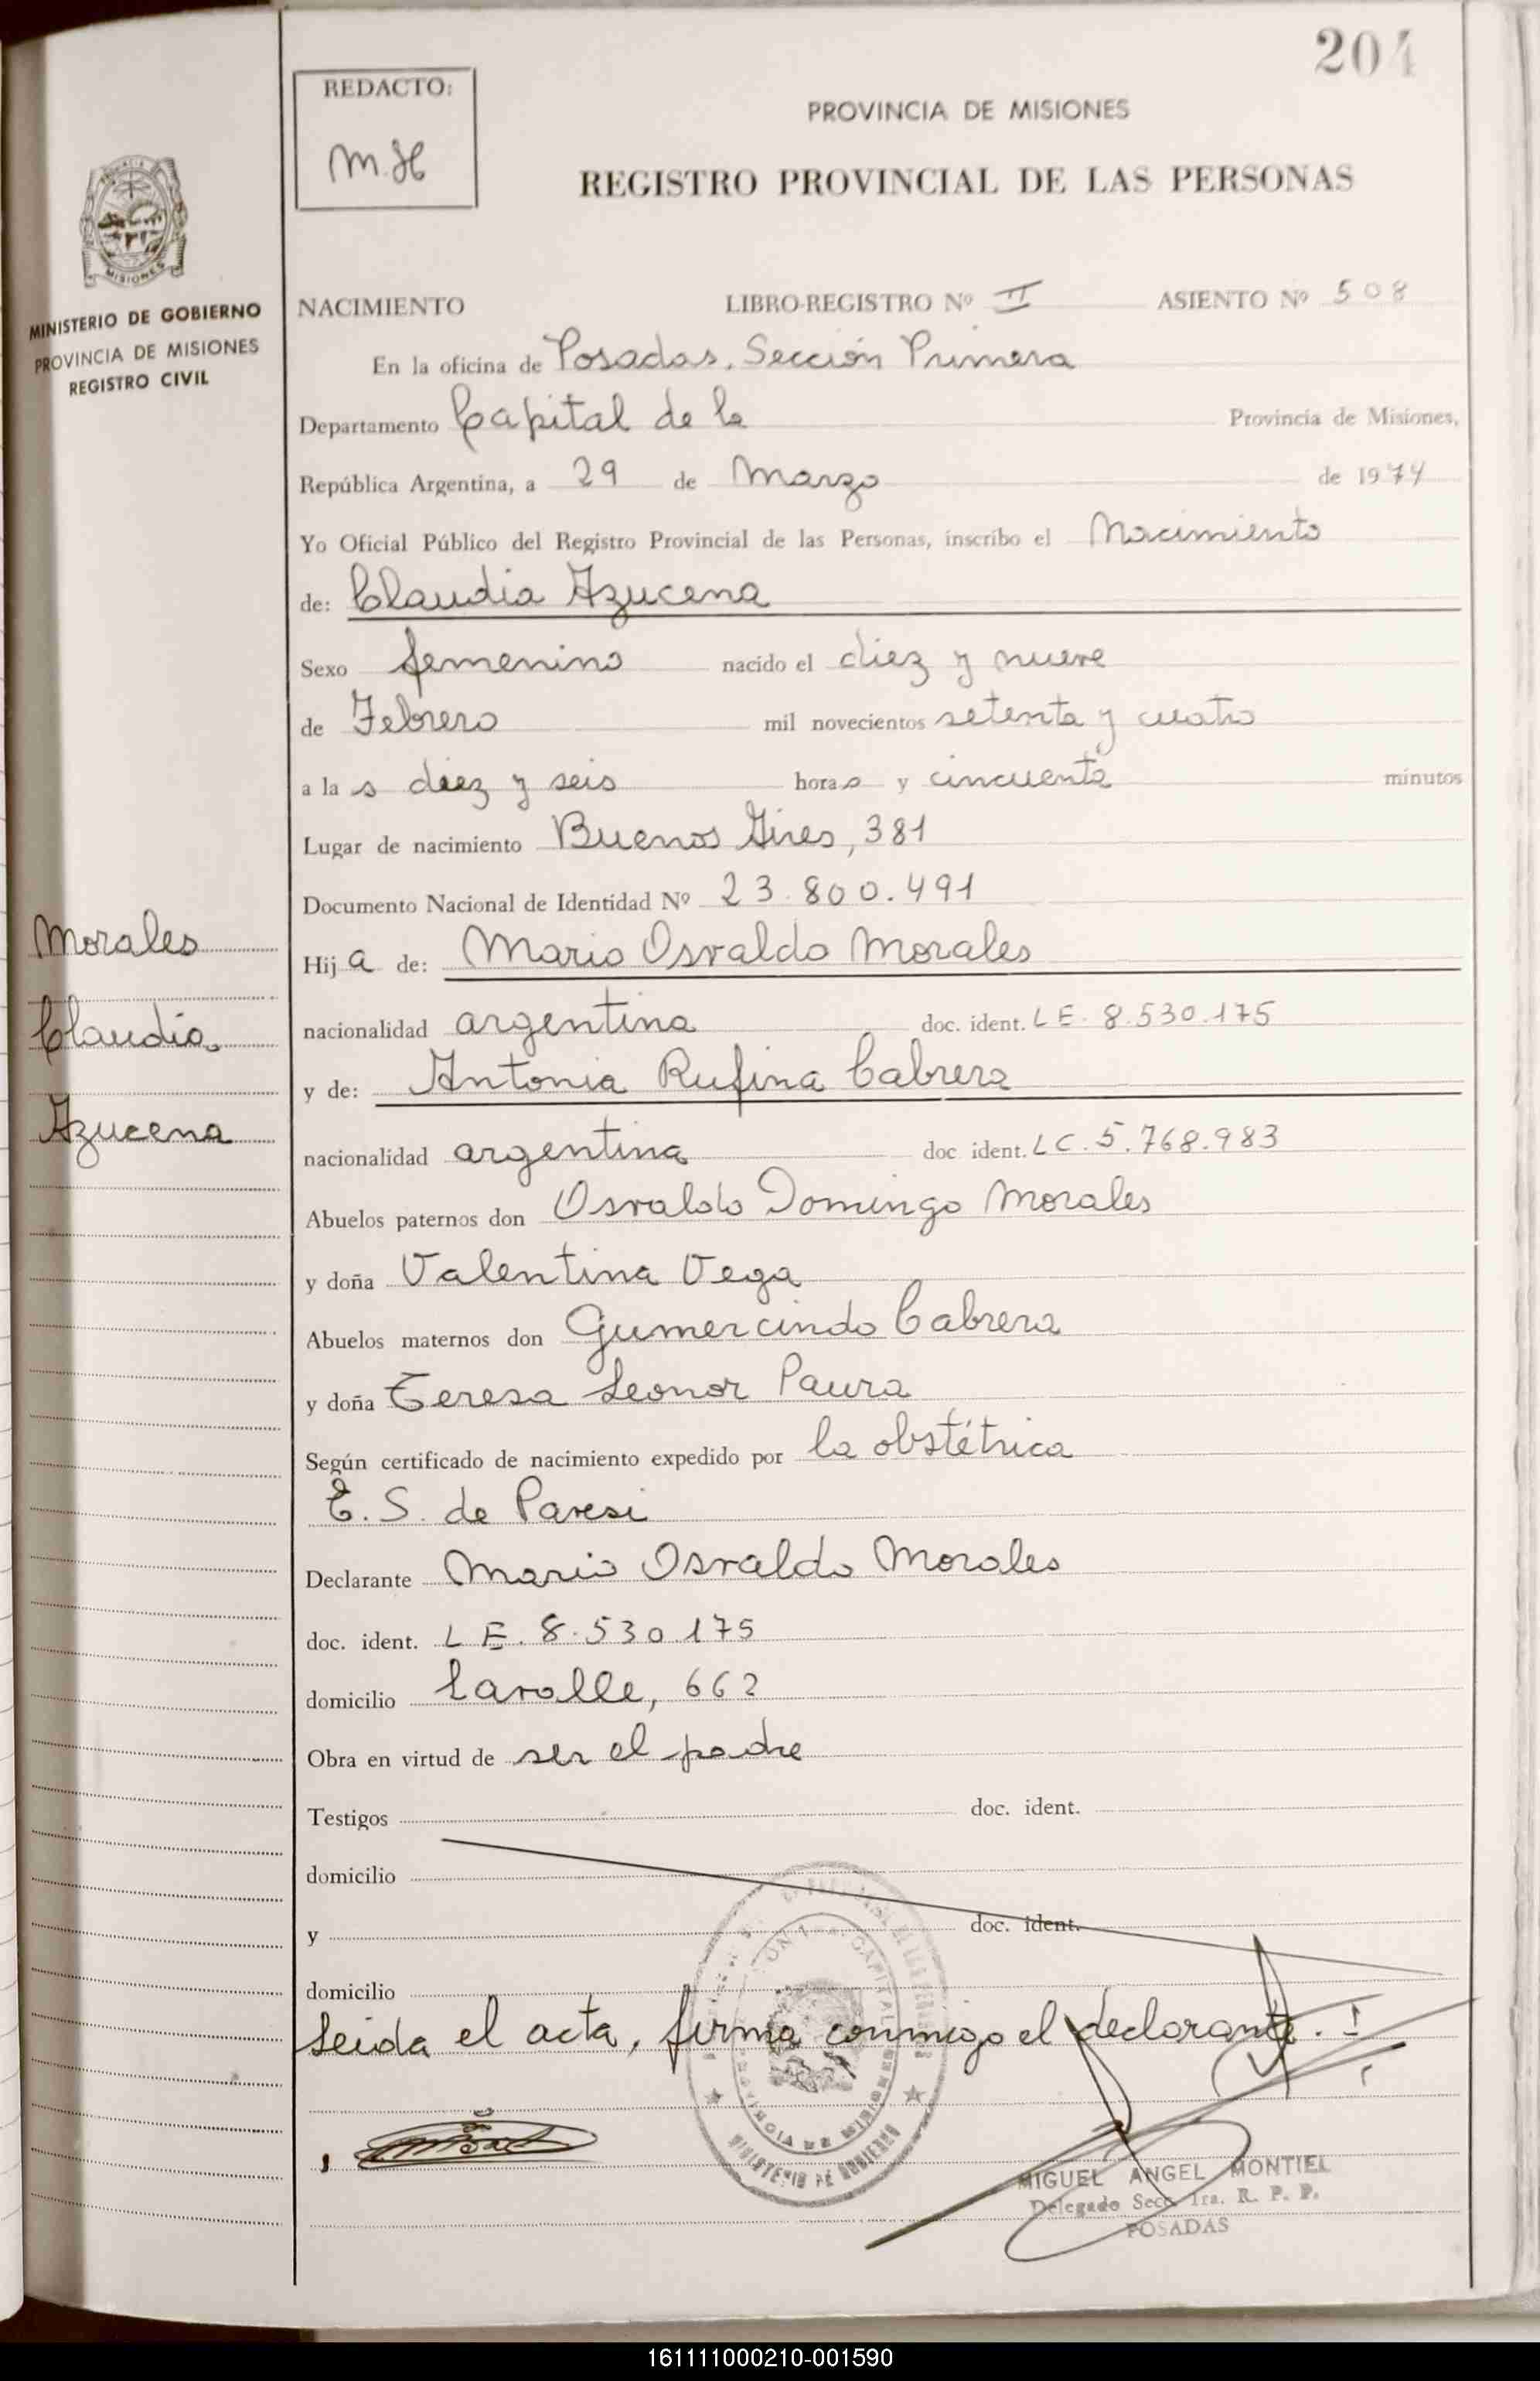 204
REDACTO:
M.H
PROVINCIA DE MISIONES
REGISTRO PROVINCIAL DE LAS PERSONAS
MISIONES
MINISTERIO DE GOBIERNO
PROVINCIA DE MISIONES
REGISTRO CIVIL
NACIMIENTO LIBRO-REGISTRO Nº II ASIENTO Nº 508
En la oficina de Posadas, Sección Primera
Departamento Capital de la Provincia de Misiones,
República Argentina, a 29 de Marzo de 1974
Yo Oficial Público del Registro Provincial de las Personas, inscribo el Nacimiento
de: Claudia Azucena
Sexo femenino nacido el diez y nueve
de Febrero mil novecientos setenta y cuatro
a la s diez y seis horas y cincuenta minutos
Lugar de nacimiento Buenos Aires, 381
Documento Nacional de Identidad Nº 23.800.491
Morales
Claudia
Azucena
Hij a de: Mario Osvaldo Morales
nacionalidad argentina doc. ident. LE. 8.530.175
y de: Antonia Rufina Cabrera
nacionalidad argentina doc ident. LC. 5.768.983
Abuelos paternos don Osvaldo Domingo Morales
y doña Valentina Vega
Abuelos maternos don Gumercindo Cabrera
y doña Teresa Leonor Paura
Según certificado de nacimiento expedido por la obstétrica
T. S. de Paresi
Declarante Mario Osvaldo Morales
doc. ident. L E. 8.530.175
domicilio Lavalle, 662
Obra en virtud de ser el padre
Testigos doc. ident.
domicilio
y doc. ident.
domicilio
Leida el acta, firma conmigo el declarante.
MINISTERIO DE GOBIERNO
MIGUEL ANGEL MONTIEL
Delegado Secc. 1ra. R. P. P.
POSADAS
161111000210-001590